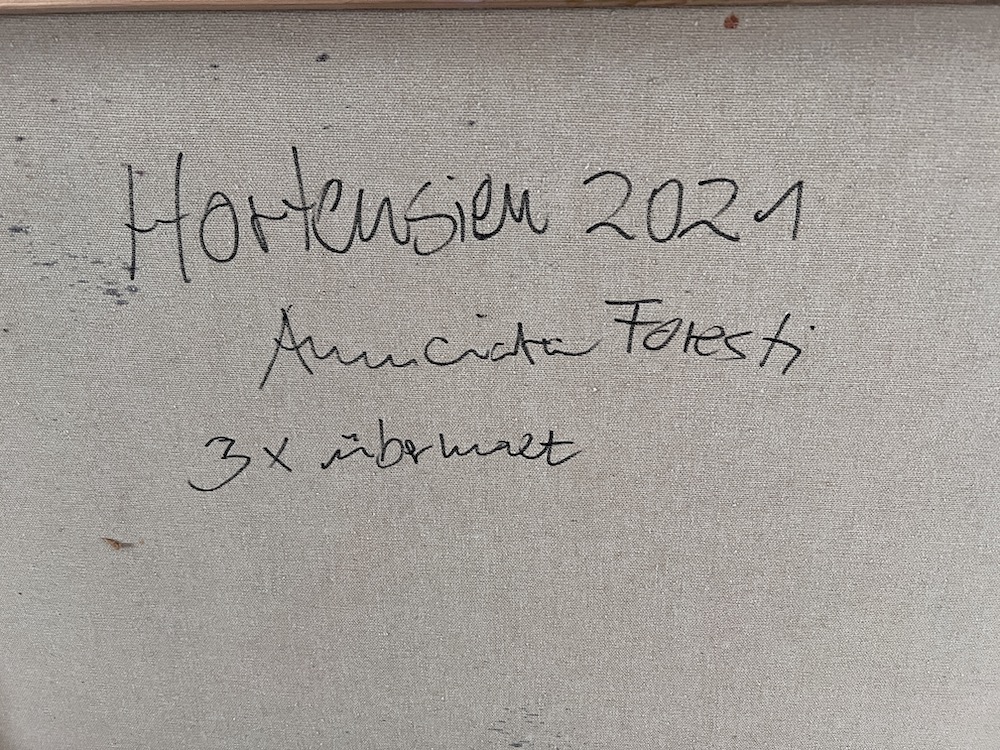 Hortensien 2021
Annunciata Foresti
3x übermalt